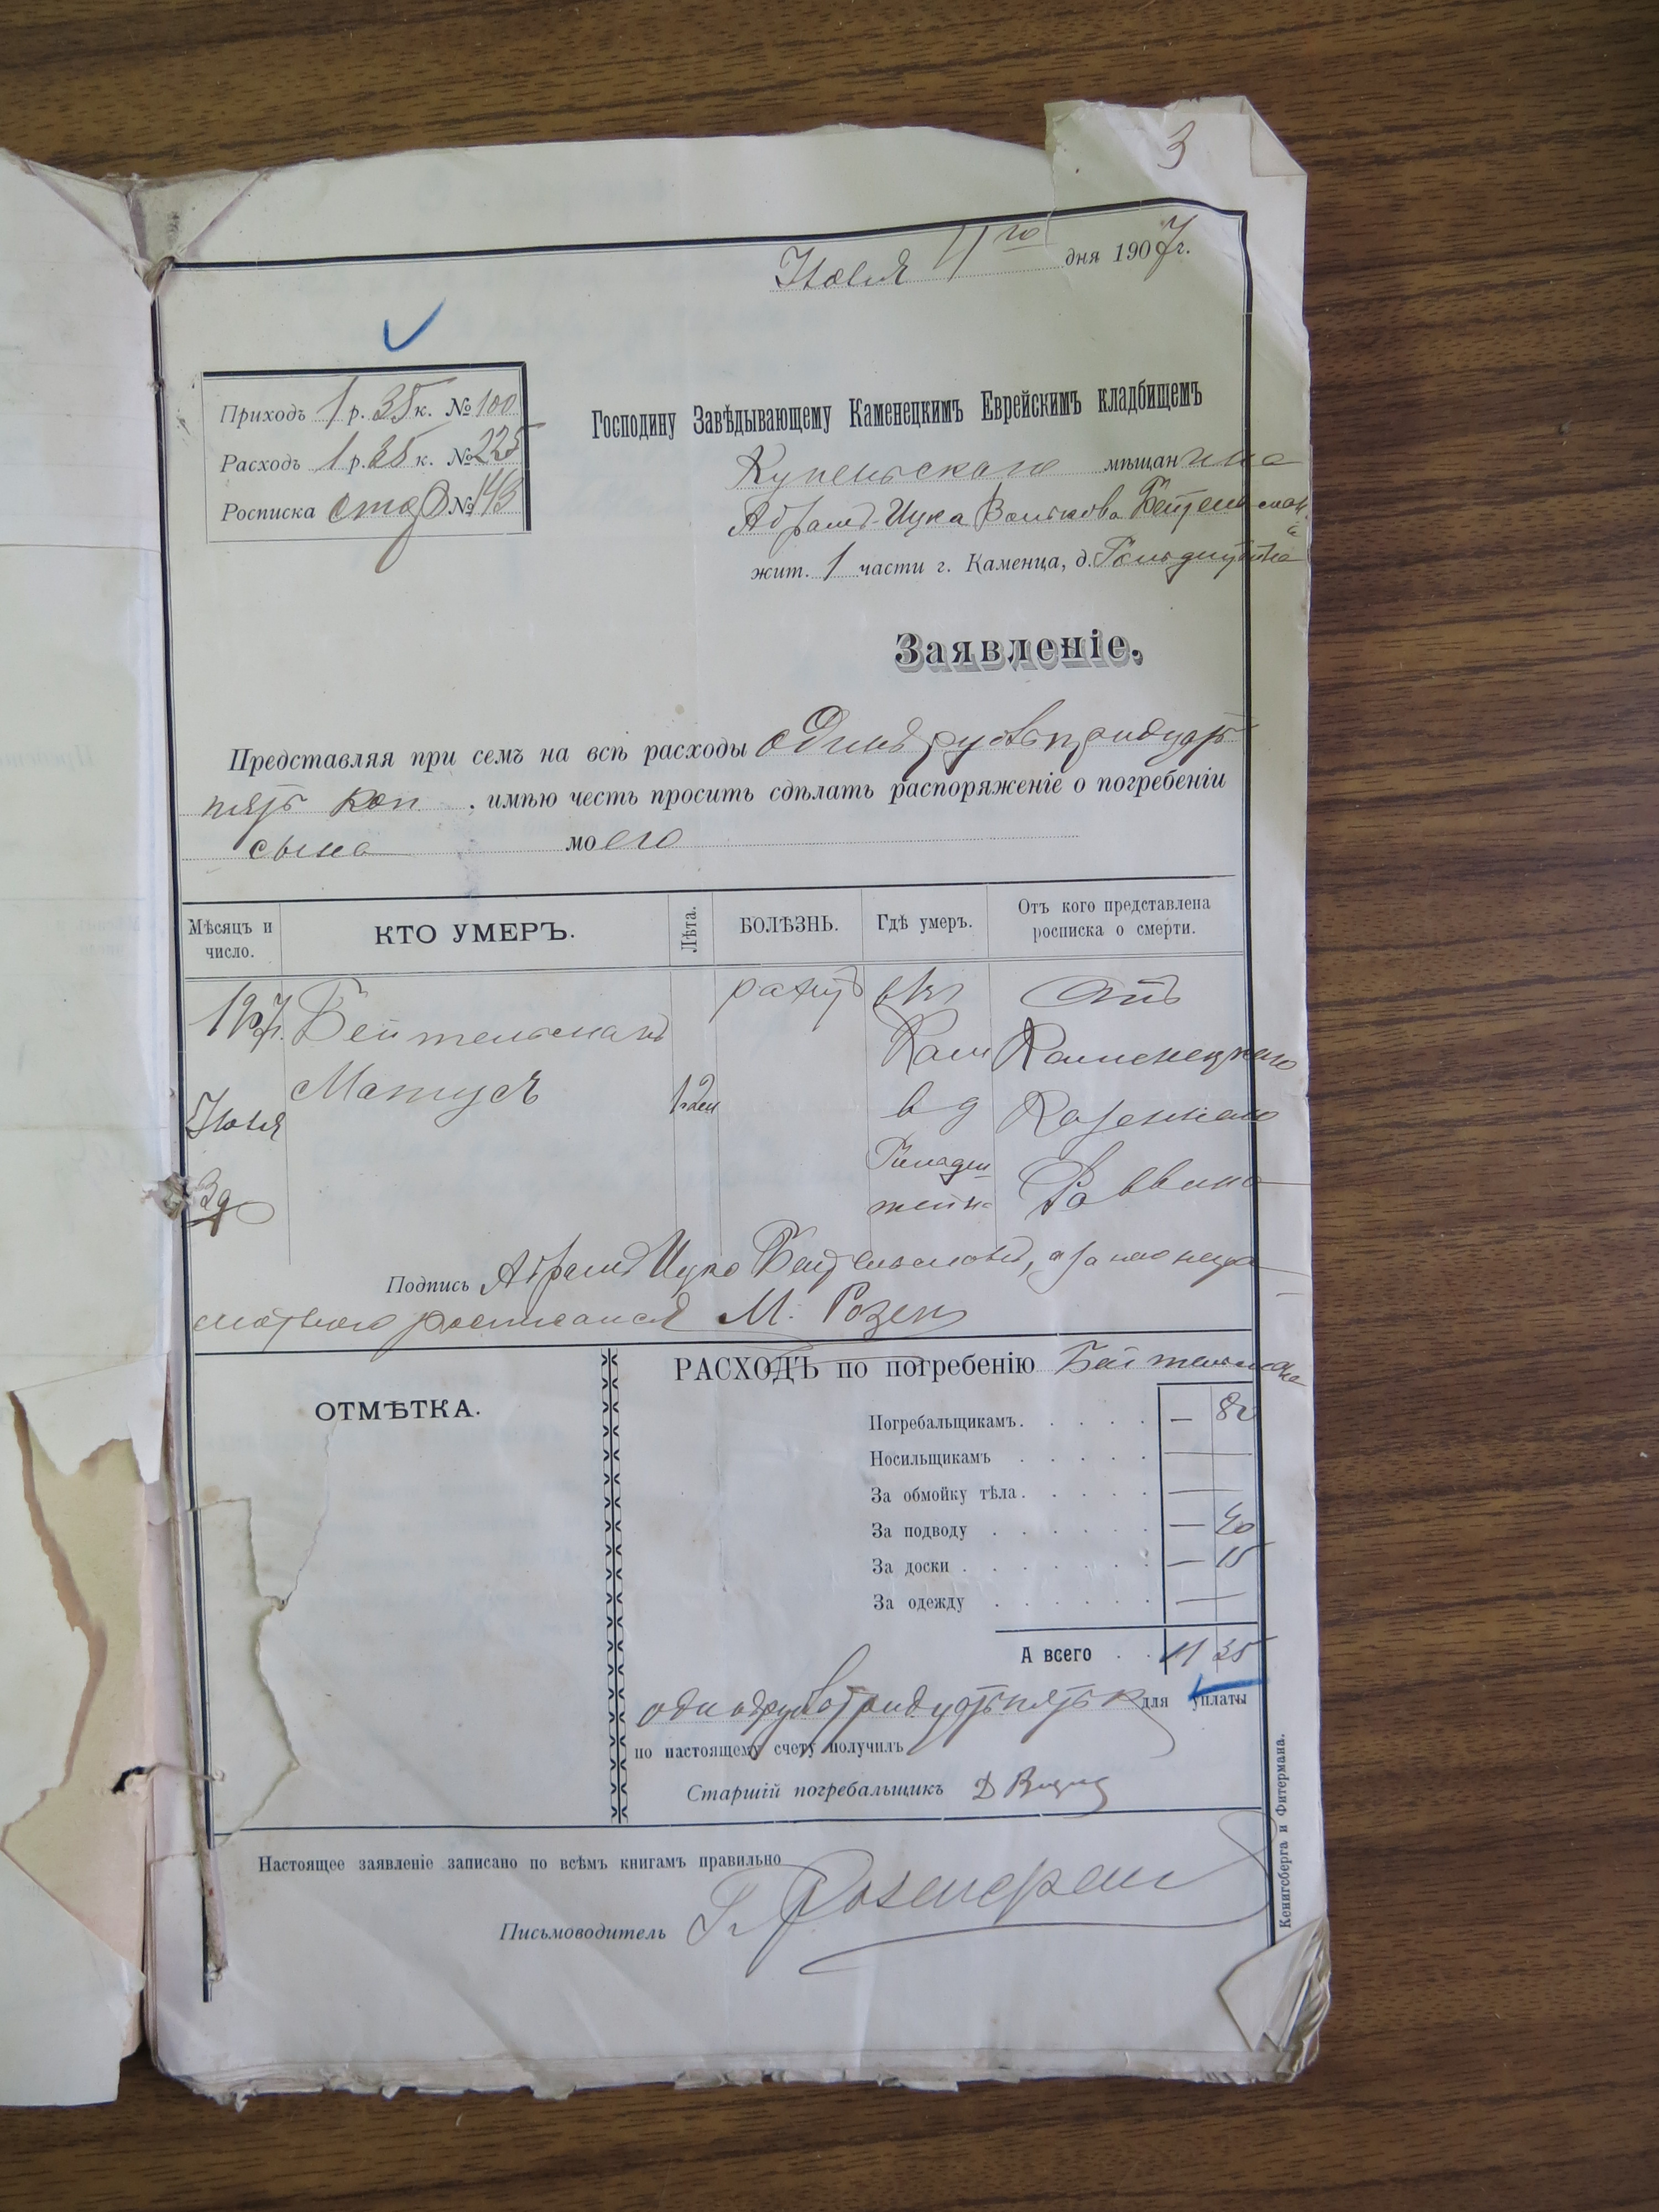 3
Июля 4го дня 1907 г.
Приходъ 1 р. 35 к. № 100
Расходъ 1 р. 35 к. № 225
Росписка № 143
Господину Завѣдывающему Каменецкимъ Еврейскимъ кладбищемъ
Купельскаго мѣщанина
Абрамъ-Ицка Волькова Бейтельмана
жит. 1 части г. Каменца, д.
Заявленіе.
Представляя при семъ на всѣ расходы одинъ рубль тридцать
пять коп , имѣю честь просить сдѣлать распоряженіе о погребеніи
сына моего
Мѣсяцъ и число. КТО УМЕРЪ. Лѣта. БОЛѢЗНЬ. Гдѣ умеръ. Отъ кого представлена росписка о смерти.
1907 г. Бейтельманъ рахит в г Отъ
Матусъ Кам Каменецкаго
Июля в д Казеннаго
3 д Раввина
Подпись Абрамъ Ицко Бейтельманъ, а за него негра
мотнаго росписался М. Розен
РАСХОДЪ по погребенію Бейтельмана
ОТМѢТКА.
Погребальщикамъ. — 80
Носильщикамъ —
За обмойку тѣла. —
За подводу — 40
За доски — 15
За одежду —
А всего 1 35
один рубль тридцать пять к для уплаты
по настоящему счету получилъ
Старшій погребальщикъ Д
Настоящее заявленіе записано по всѣмъ книгамъ правильно
Письмоводитель
Кенигсберга и Фитермана.